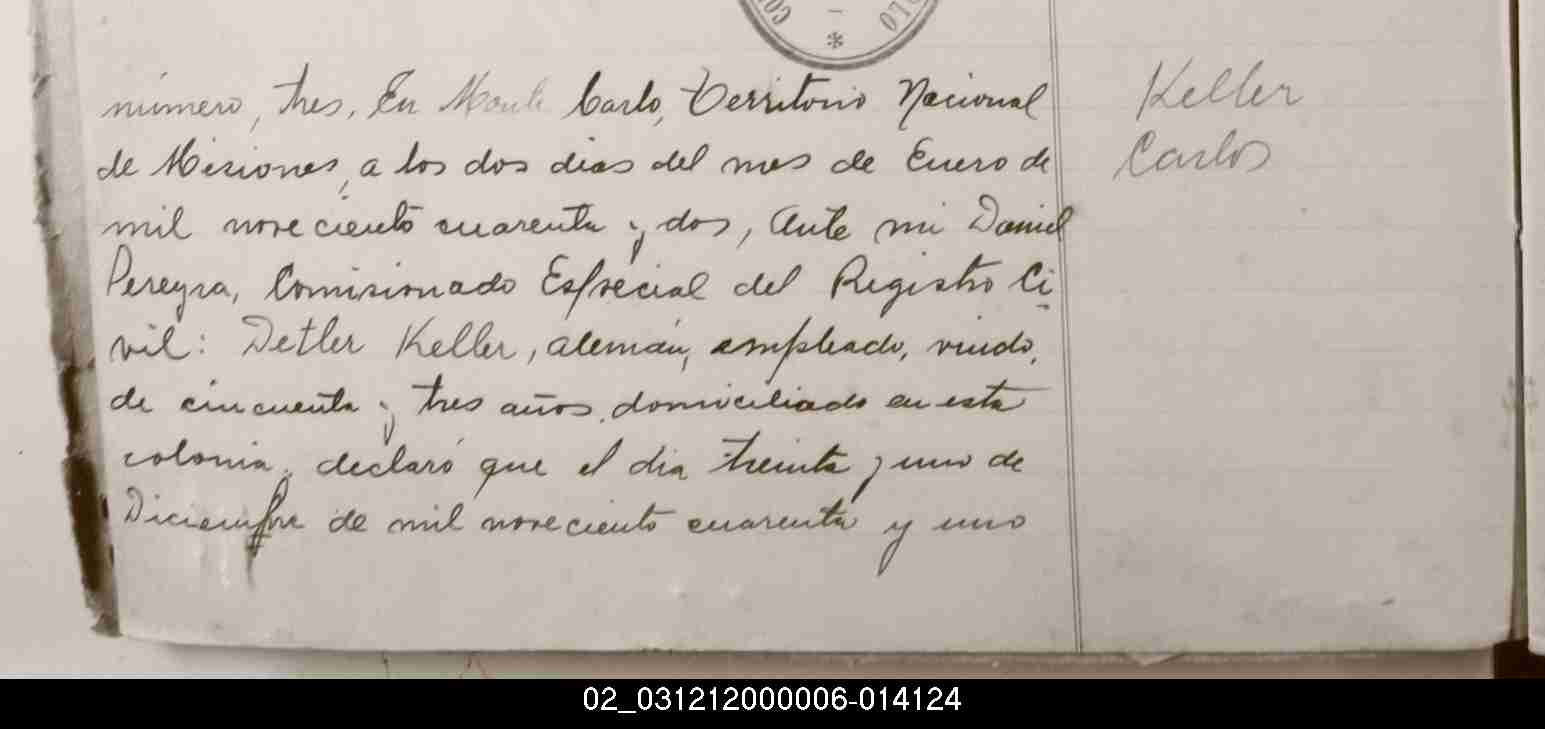 número, tres, En Monte Carlo, Territorio Nacional
de Misiones, a los dos dias del mes de Enero de
mil noveciento cuarenta y dos, Ante mi Daniel
Pereyra, Comisionado Especial del Registro Ci
vil: Detler Keller, alemán, empleado, viudo,
de cincuenta y tres años, domiciliado en esta
colonia, declaró que el dia treinta y uno de
Diciembre de mil noveciento cuarenta y uno
Keller
Carlos
02_031212000006-014124